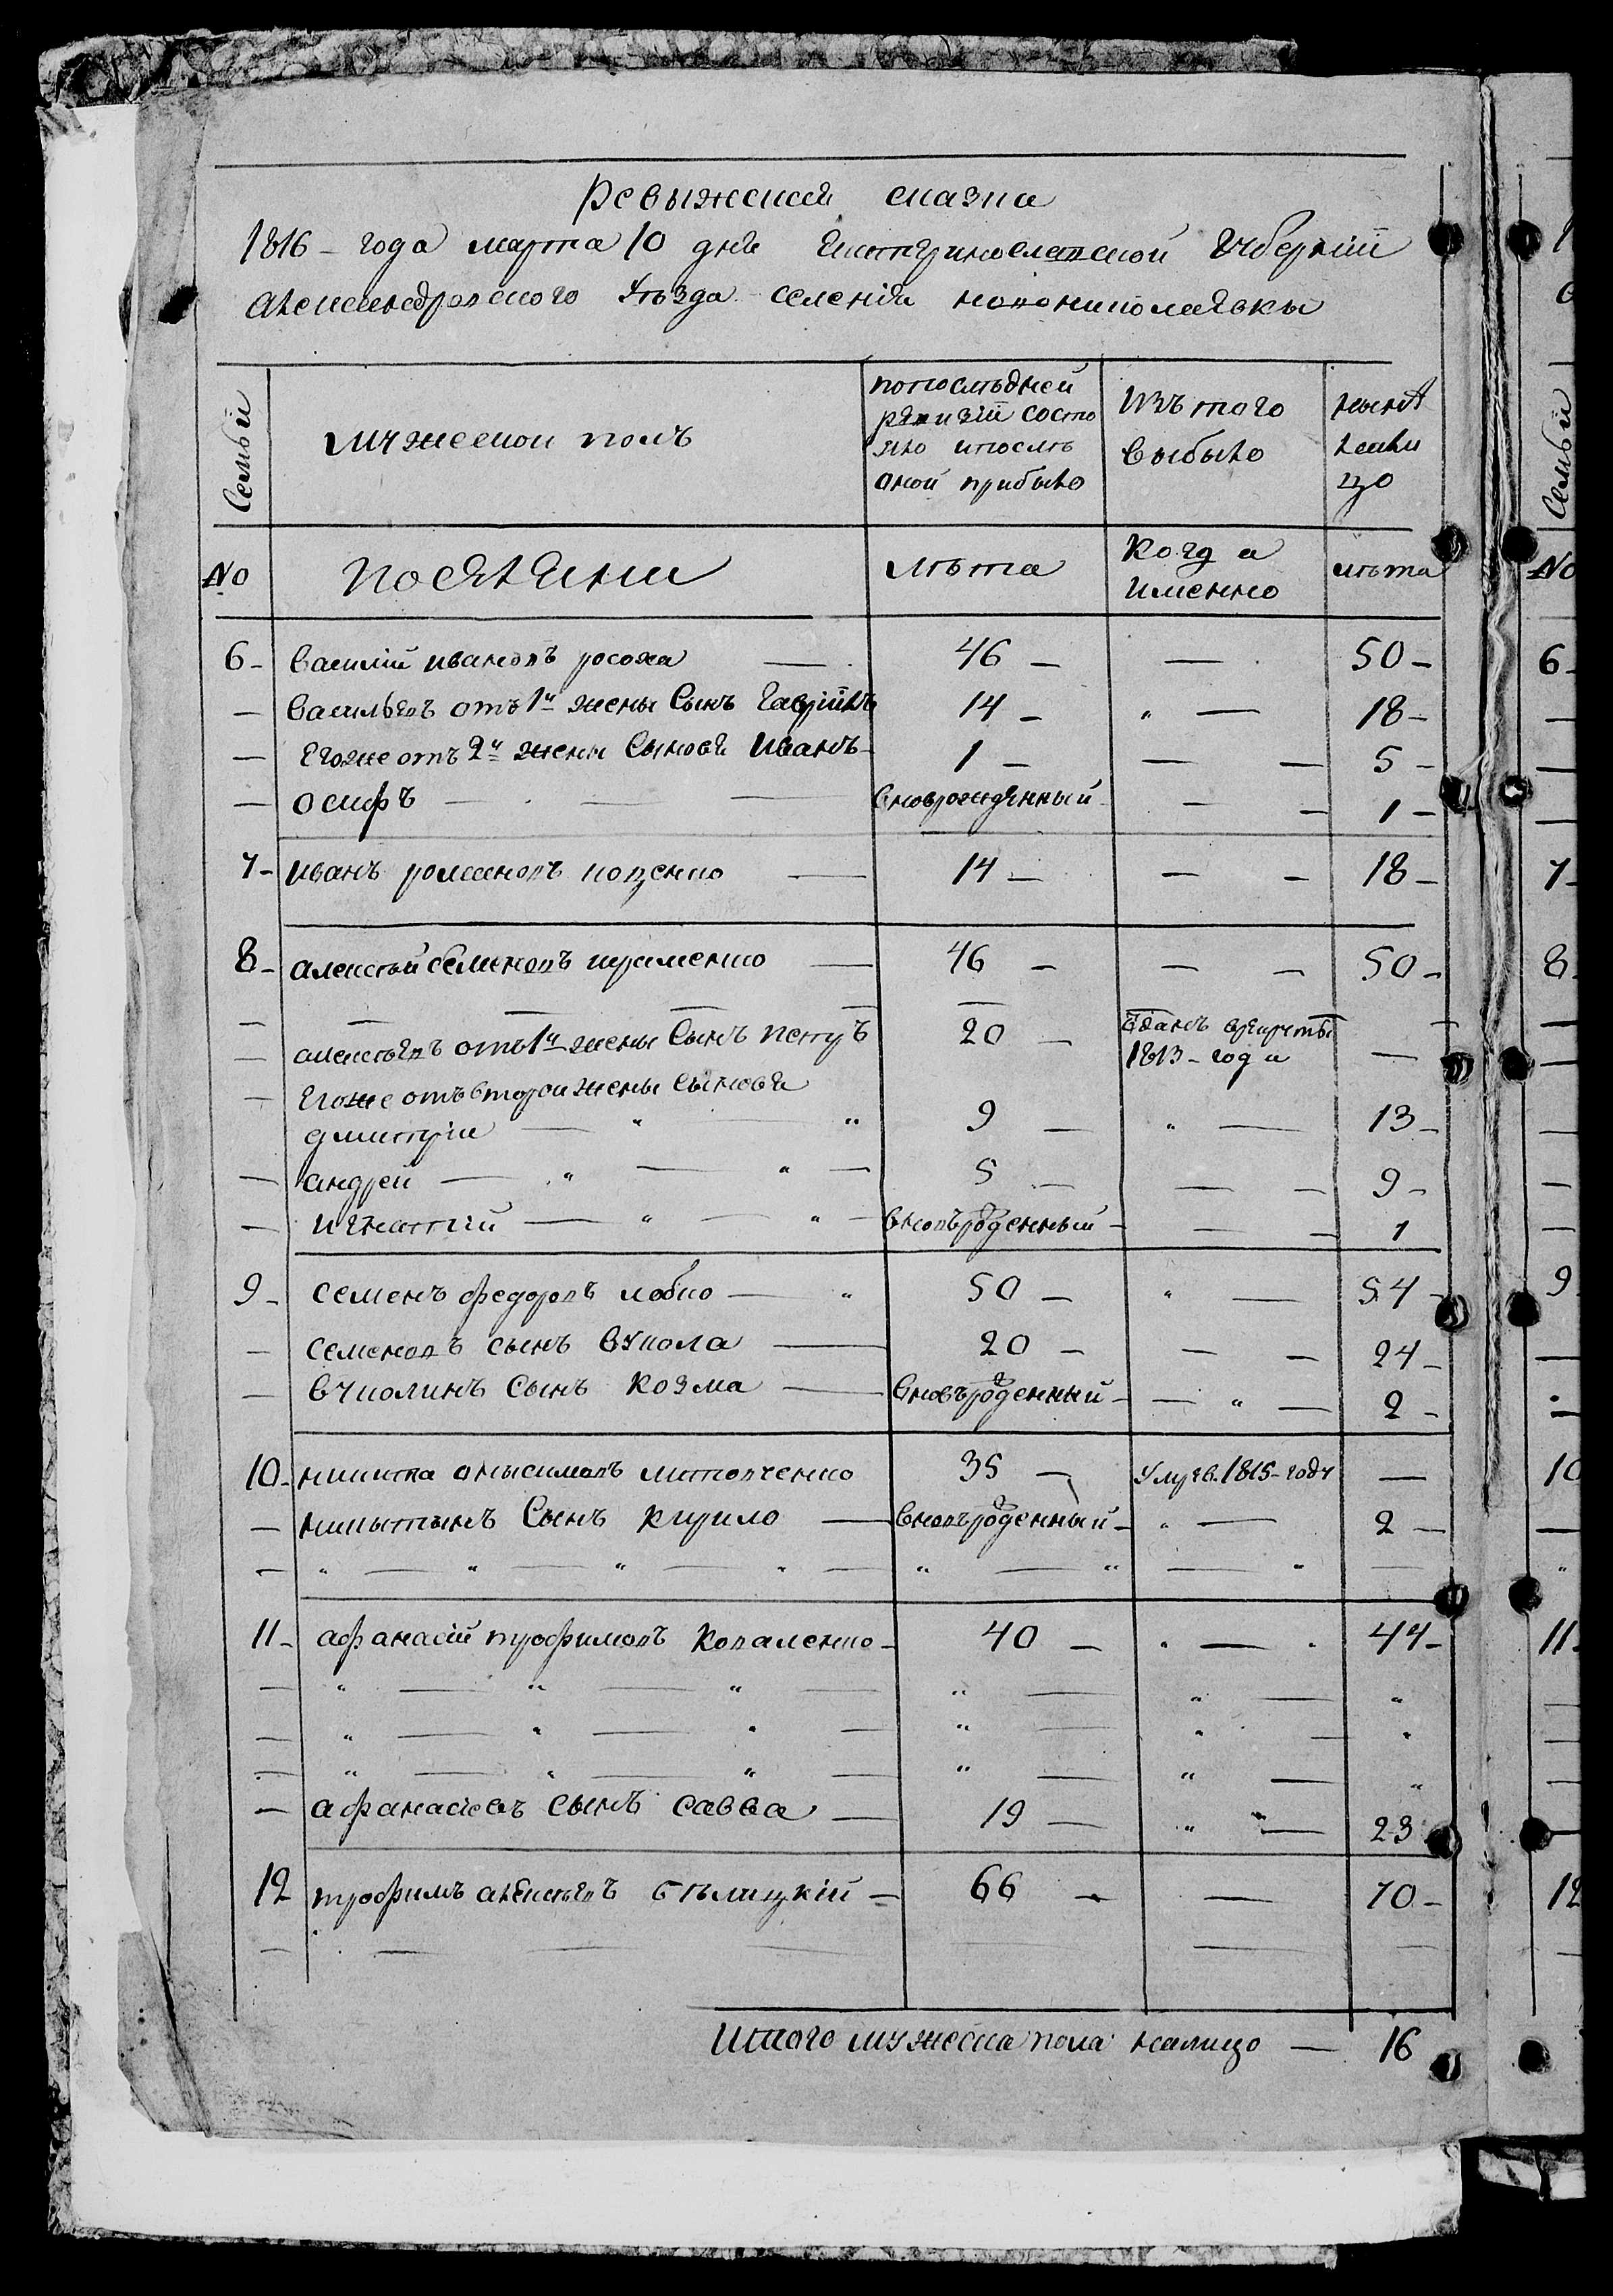 Ревыжская сказка
1816 – года марта 10 дня Екатеринославской Губернiи
Александровского Уѣзда селенiя новониколаевки
Семьи
мужеской полъ
попослѣдней
ревизiи состо
яло ипослѣ
оной прибыло
Изъ того
выбыло
нынѣ
нали
цо
Семьи
№
поселяни
лѣта
Когда
именно
лѣта
№
6 – василiй ивановъ росоха — 46 — — 50 – 6 –
— васильевъ отъ 1й жены Сынъ Гаврiилъ 14 – " — 18 –
— Егоже отъ 2й жены Сыновя Иванъ – 1 – — — 5 –
— осифъ — — вноврожденный — — 1 –
7 – иванъ романовъ коценко — 14 – — — 18 – 7 –
8 – алексѣй семеновъ краменко — 46 – — — 50 – 8 –
— алексѣевъ отъ 1й жены Сынъ петръ 20 – Сданъ врекруты
1813 – года —
— Егоже отъ второй жены Сыновя
дмитрiи — " — " 9 – " — 13 –
— андрей — " — " — 5 – — — 9 –
— игнатiй — " — " — вновъроденный – — — 1
9 – семенъ федоровъ лобко — " 50 – " — 54 – 9
— семеновъ сынъ вукола — 20 – — — 24 –
— вуколинъ сынъ козма — вновъроденный – — " — 2 –
10 – никита онысимовъ литовченко 35 – Умре в. 1815 – году — 10
— никытынъ Сынъ кирило — вновъроденный – " — 2 —
— " — " — " — " — " — " — " —
11 – афанасiй трофимовъ коваленко – 40 – " — " 44 – 11 –
— " — " — " — " — " — "
— " — " — " — " — " — "
— " — " — " — " — " — "
— афанасiевъ сынъ савва — 19 — " — 23
12 трофимъ алексѣевъ бѣлицкiй – 66 – — 70 – 12
Итого мужеска пола налицо — 16